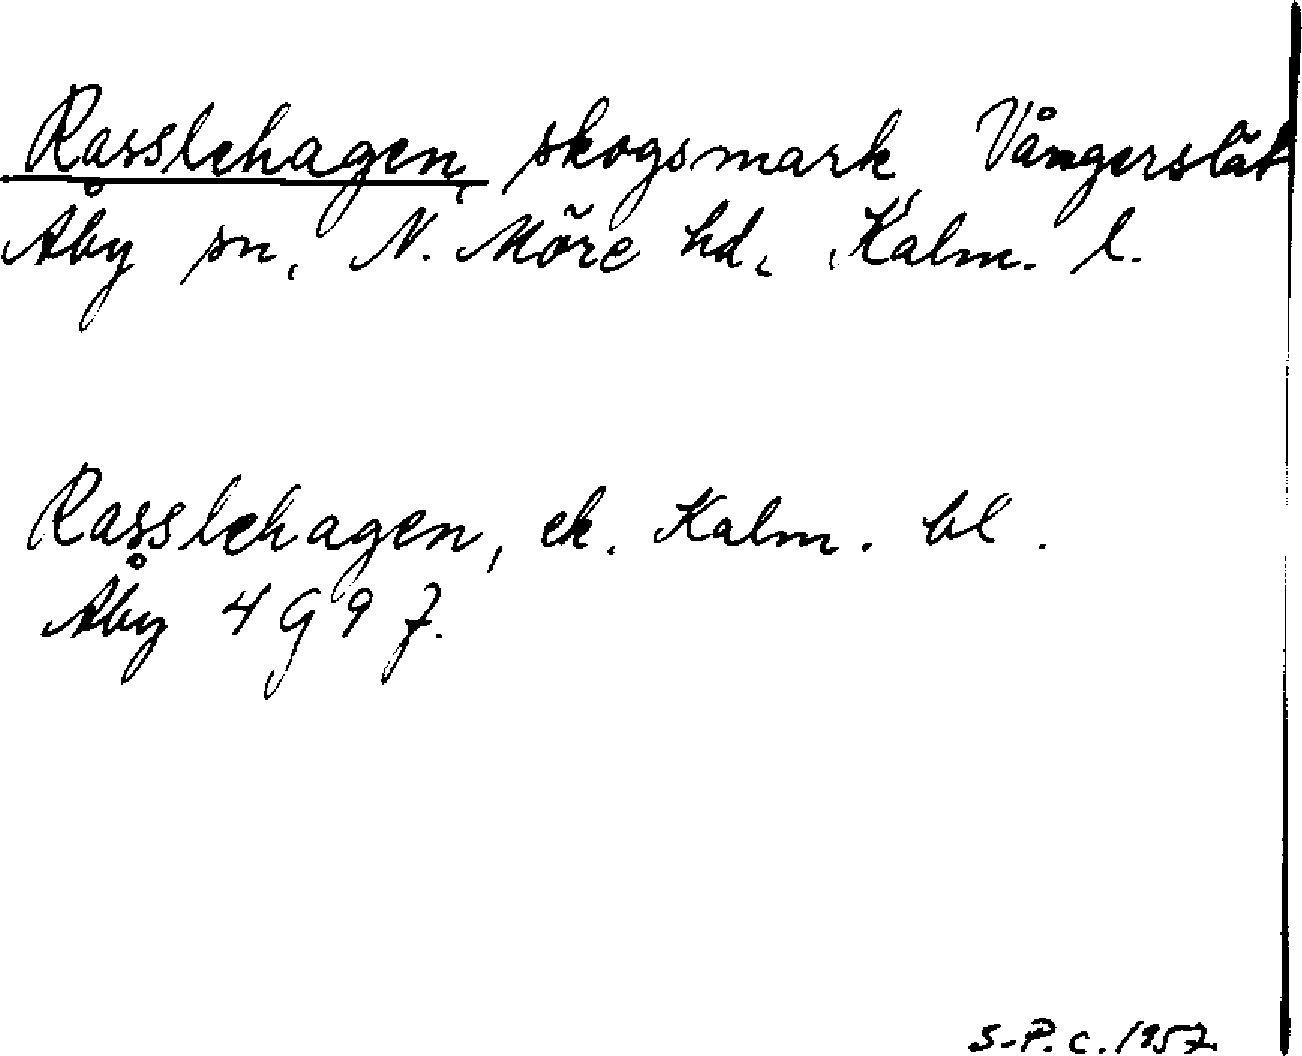 Rasslehagen, skogsmark, Vångerslät
Åby sn, N. Möre hd, Kalm. l.
Rasslehagen, ek. Kalm. bl.
Åby 4 G 9 f.
S-P. C. 1957.